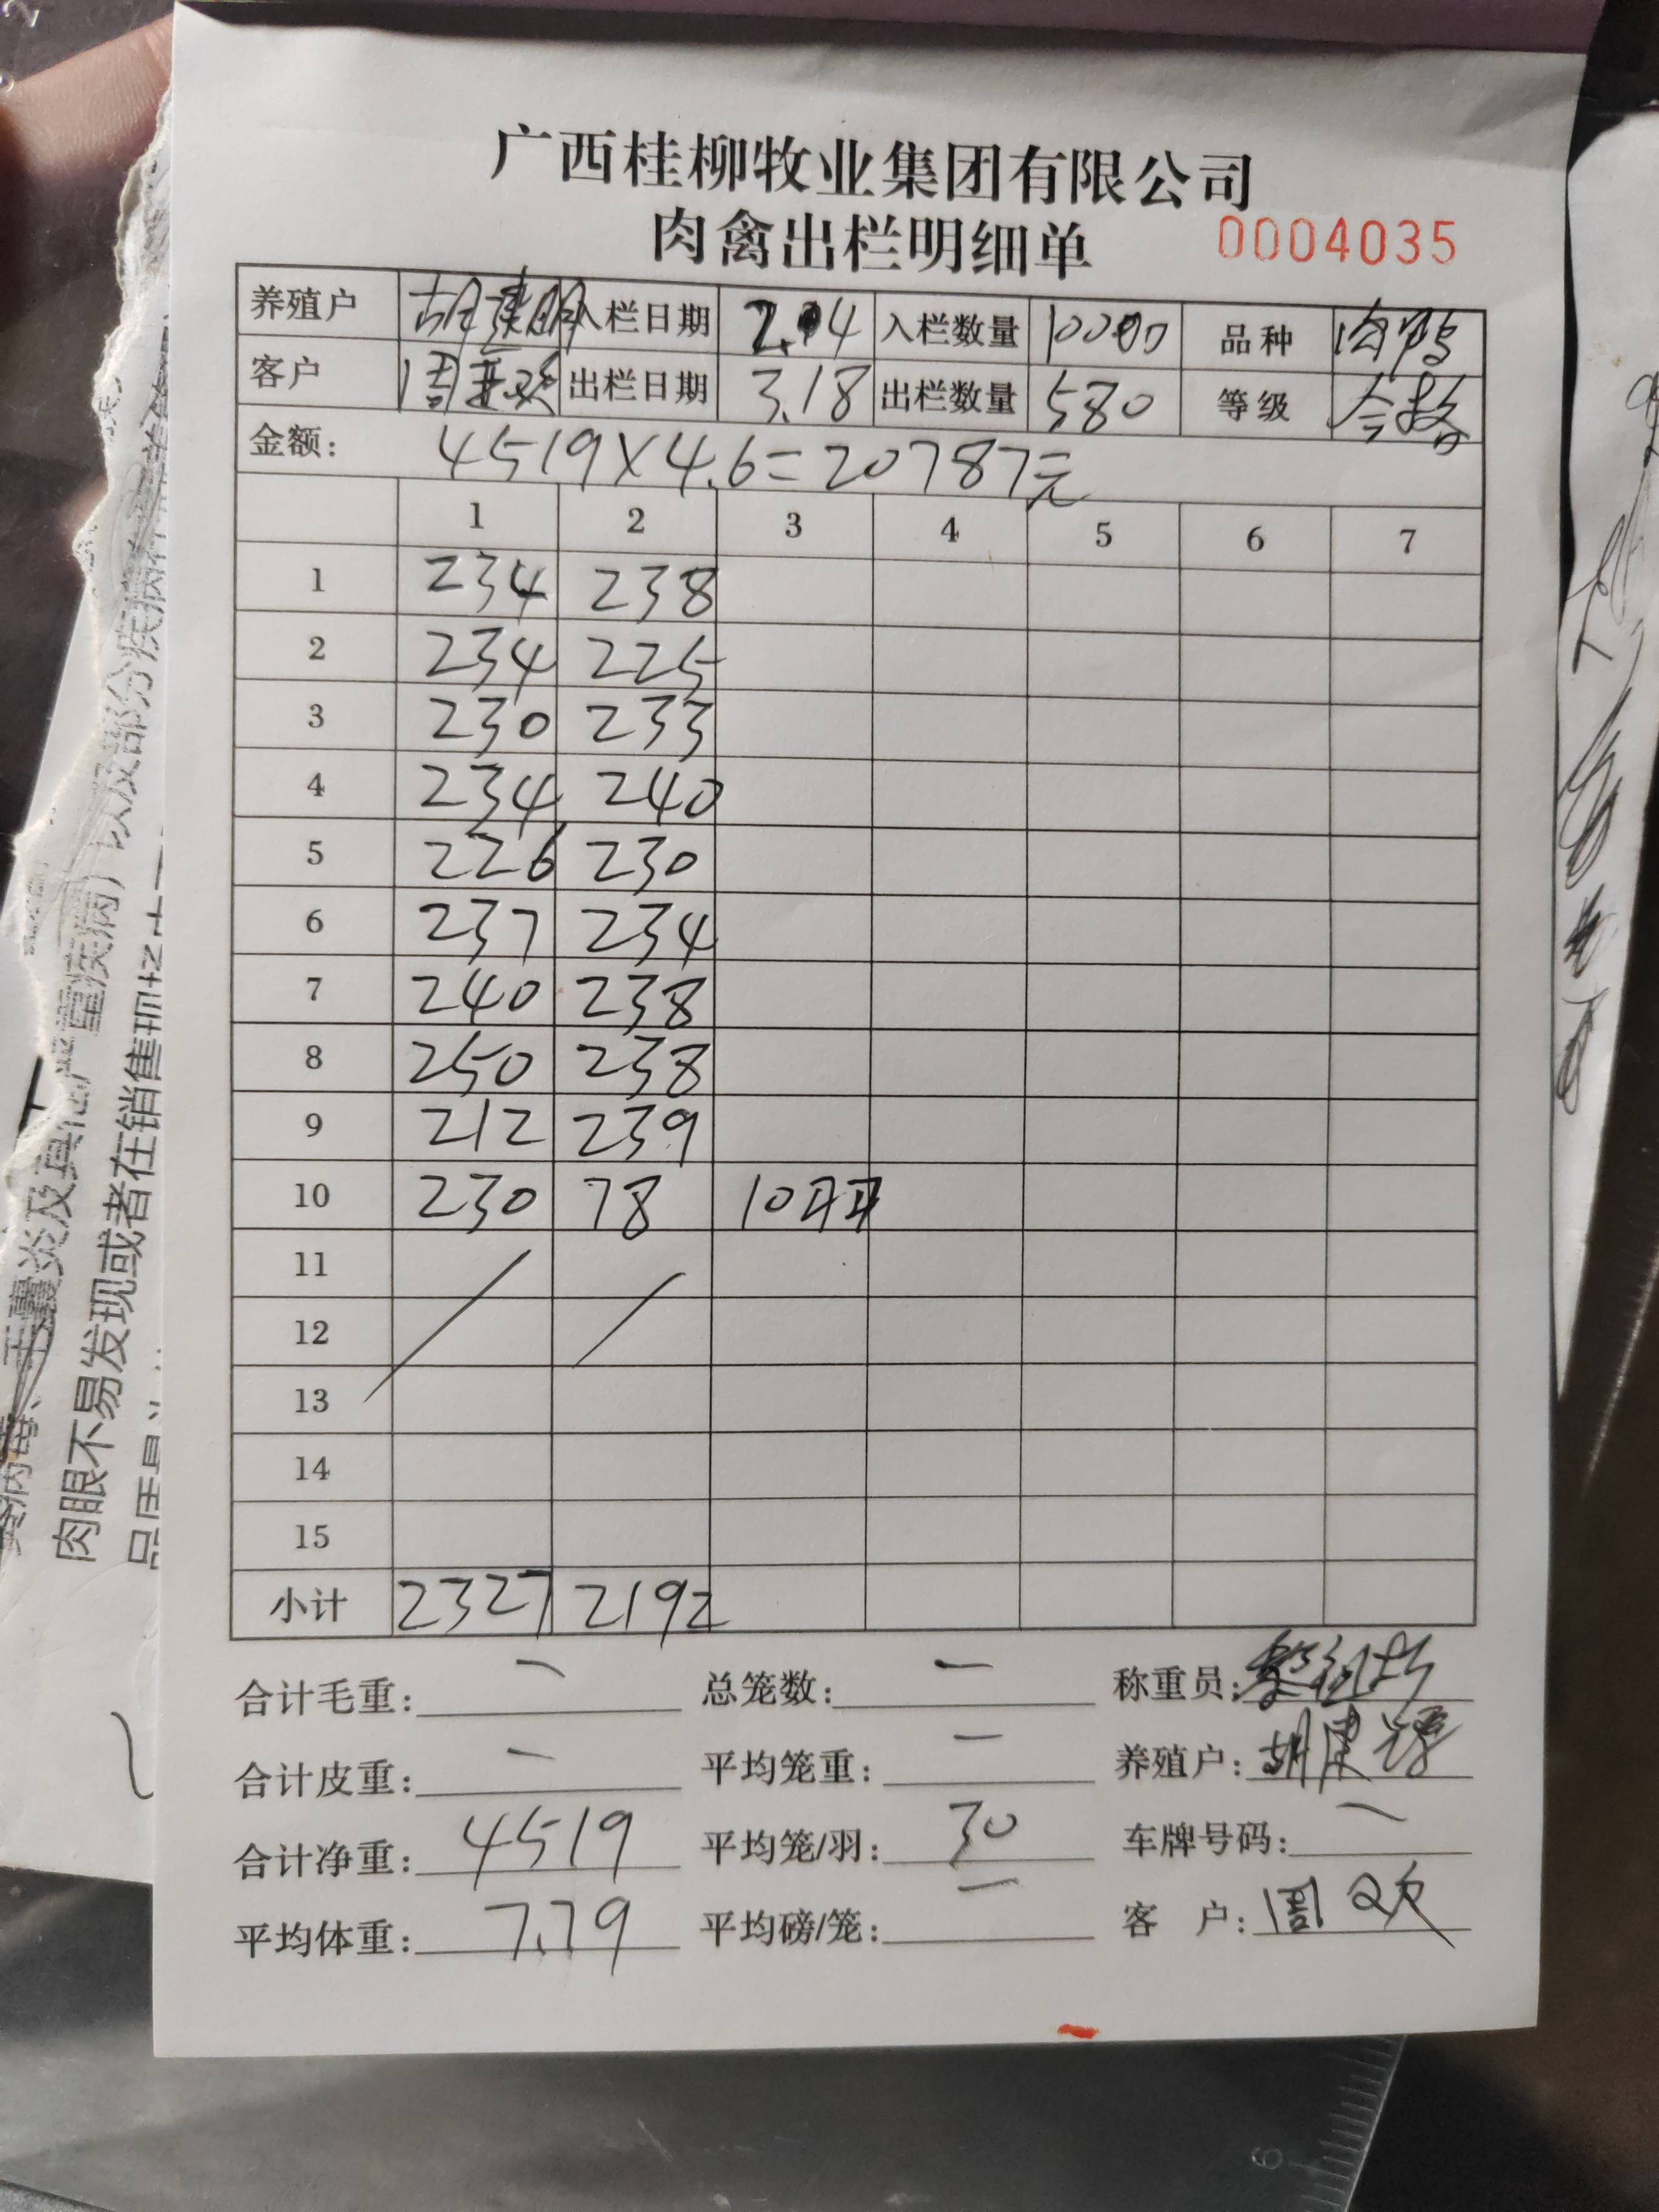 广西桂柳牧业集团有限公司
肉禽出栏明细单 0004035
养殖户 胡建明 入栏日期 2.4 入栏数量 10000 品种
客户 周 出栏日期 3.18 出栏数量 580 等级 合格
金额: 4519×4.6=20787元
1 2 3 4 5 6 7
1 234 238
2 234 225
3 230 233
4 234 240
5 226 230
6 237 234
7 240 238
8 250 238
9 212 239
10 230 78 10只
11
12
13
14
15
小计 2327 2192
合计毛重: 一 总笼数: 一 称重员:
合计皮重: 一 平均笼重: 一 养殖户: 胡建
合计净重: 4519 平均笼/羽: 30 车牌号码: 一
平均体重: 7.79 平均磅/笼: 一 客 户: 周欢
肉眼不易发现或者在销售现场